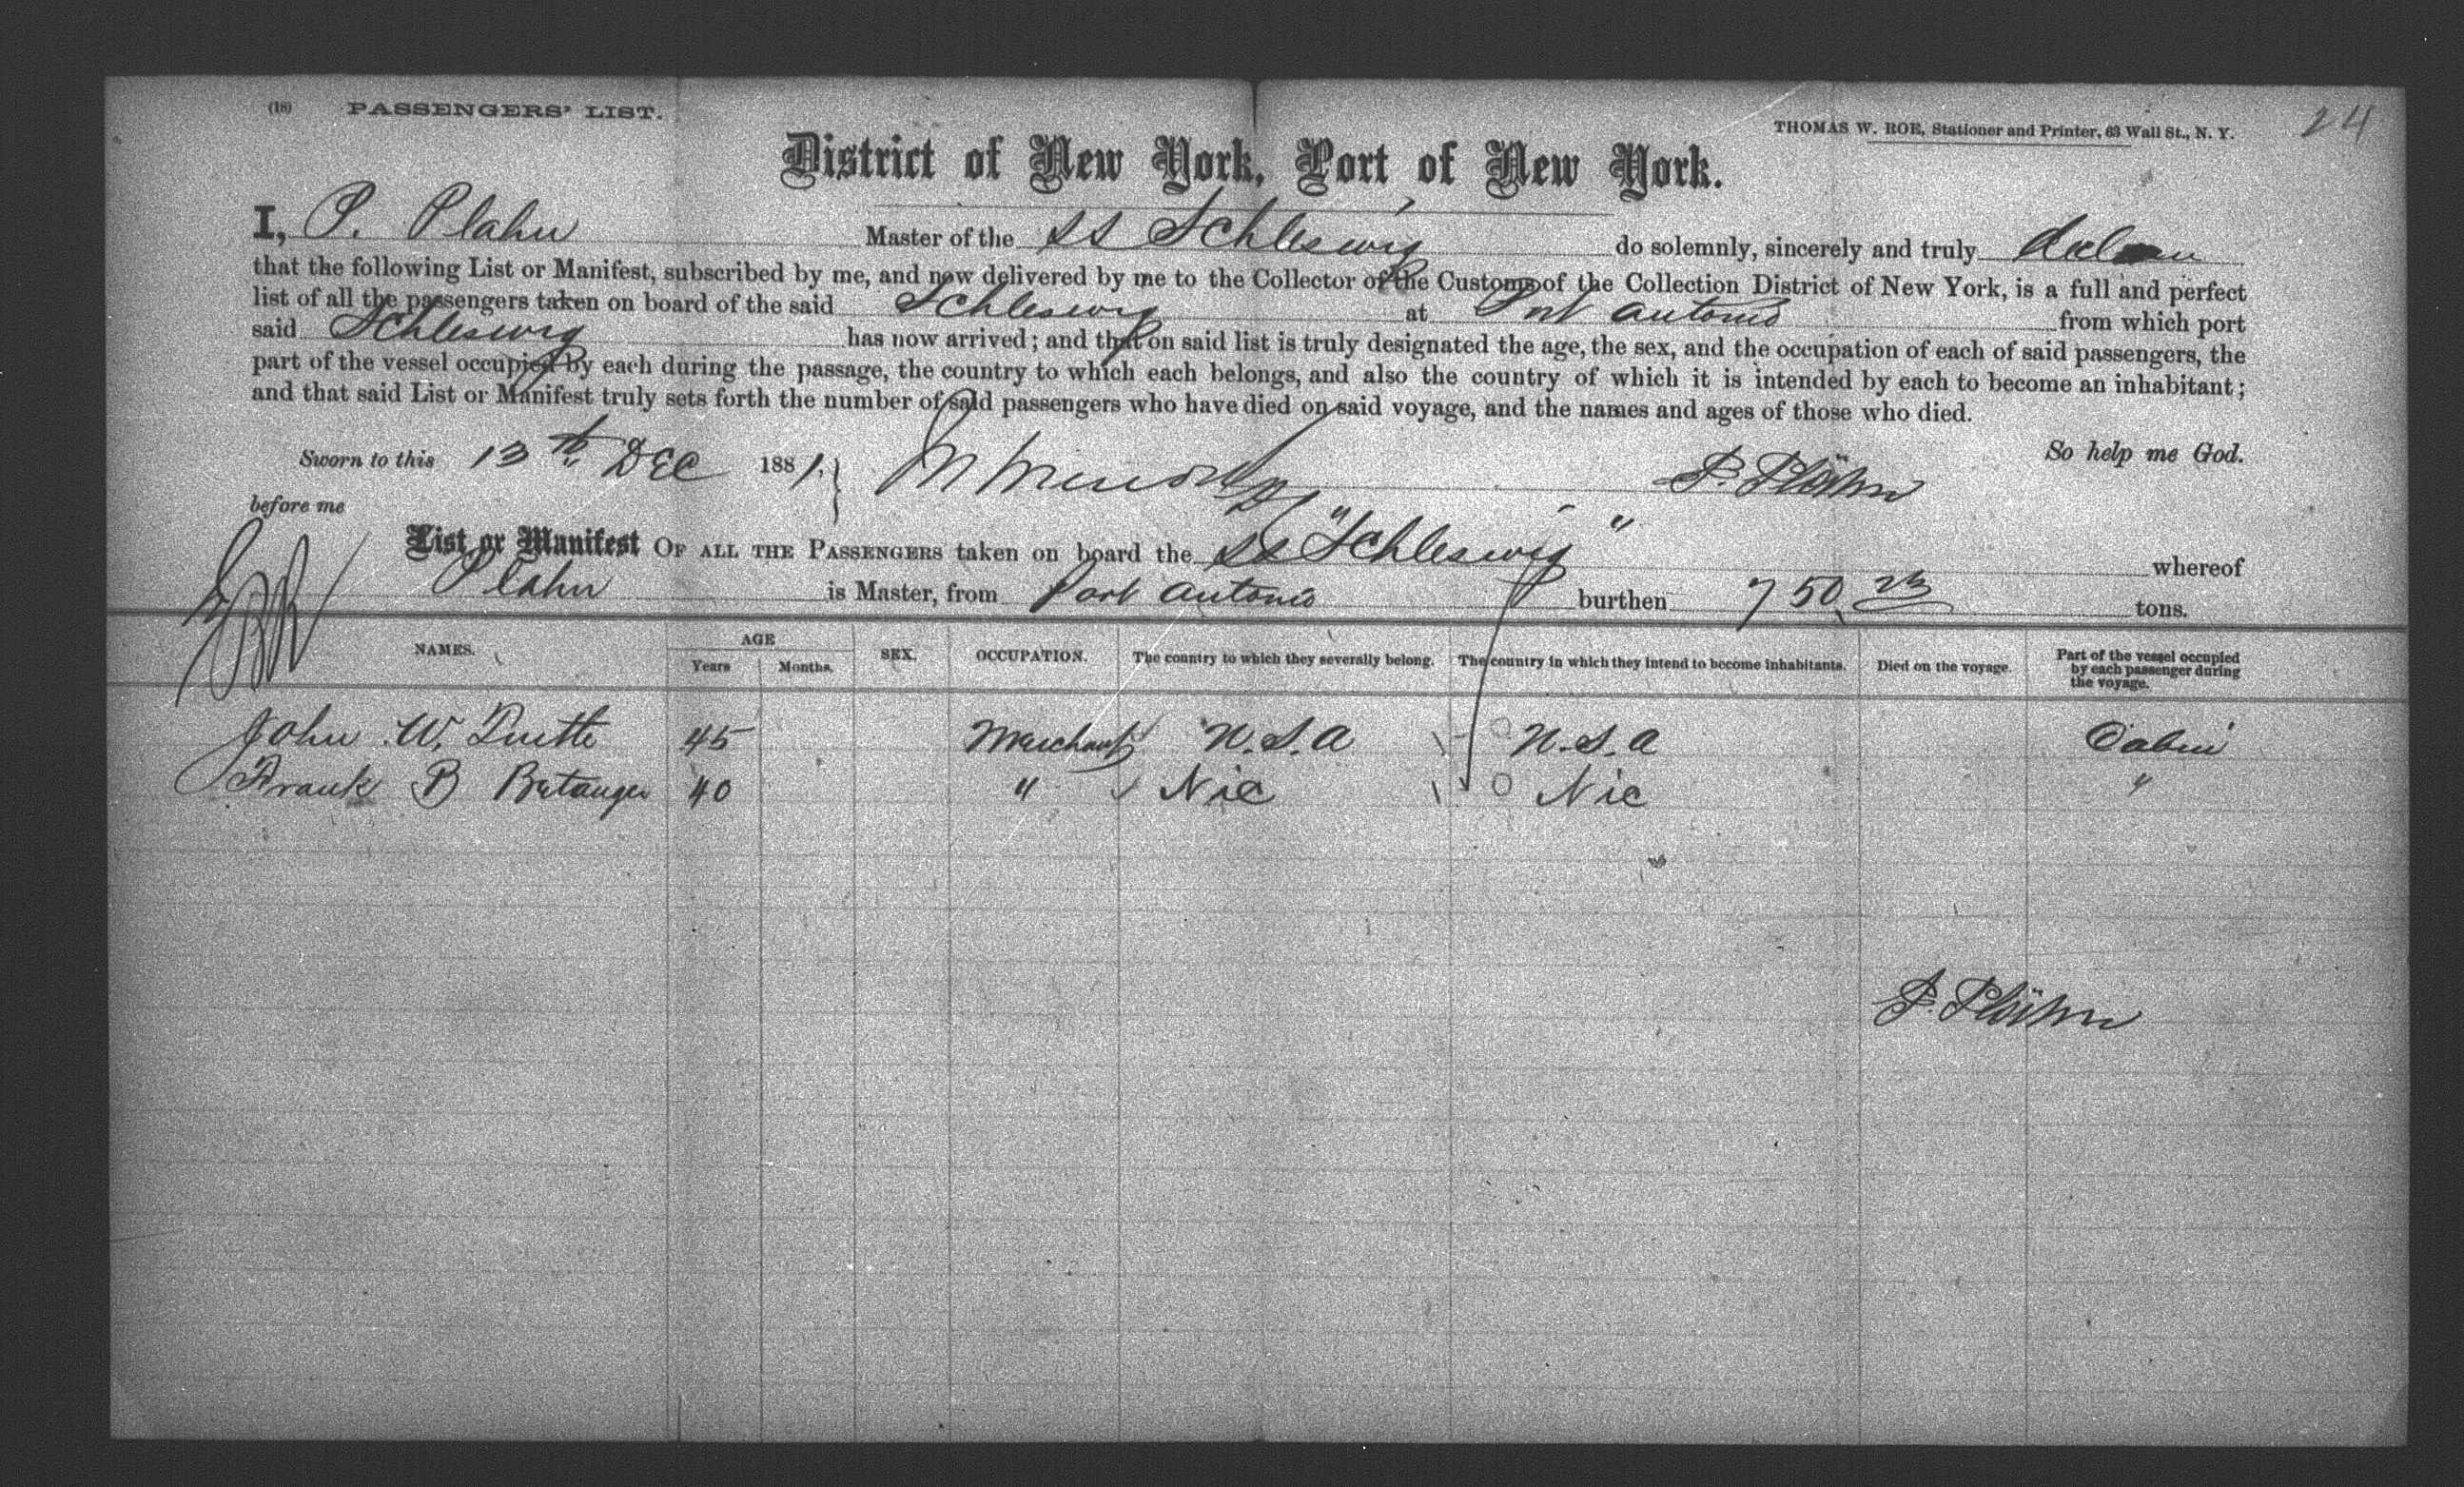 (18) PASSENGERS' LIST.
THOMAS W. ROE, Stationer and Printer, 63 Wall St., N. Y.
24
District of New York, Port of New York.
I, P. Plahn Master of the SS Schleswig do solemnly, sincerely and truly
that the following List or Manifest, subscribed by me, and now delivered by me to the Collector of the Customs of the Collection District of New York, is a full and perfect
list of all the passengers taken on board of the said Schleswig at Port Antonio from which port
said Schleswig has now arrived; and that on said list is truly designated the age, the sex, and the occupation of each of said passengers, the
part of the vessel occupied by each during the passage, the country to which each belongs, and also the country of which it is intended by each to become an inhabitant;
and that said List or Manifest truly sets forth the number of said passengers who have died on said voyage, and the names and ages of those who died.
So help me God.
Sworn to this 13th Dec 1881.
P. Plöhn
before me
List or Manifest OF ALL THE PASSENGERS taken on board the SS "Schleswig" whereof
Plahn is Master, from Port Antonio burthen 750 tons.
NAMES. AGE Years Months. SEX. OCCUPATION. The country to which they severally belong. The country in which they intend to become inhabitants. Died on the voyage. Part of the vessel occupied by each passenger during the voyage.
John W. 45 Merchant U.S.A U.S.A Cabin
Frank B 40 " Nic Nic "
P. Plöhn